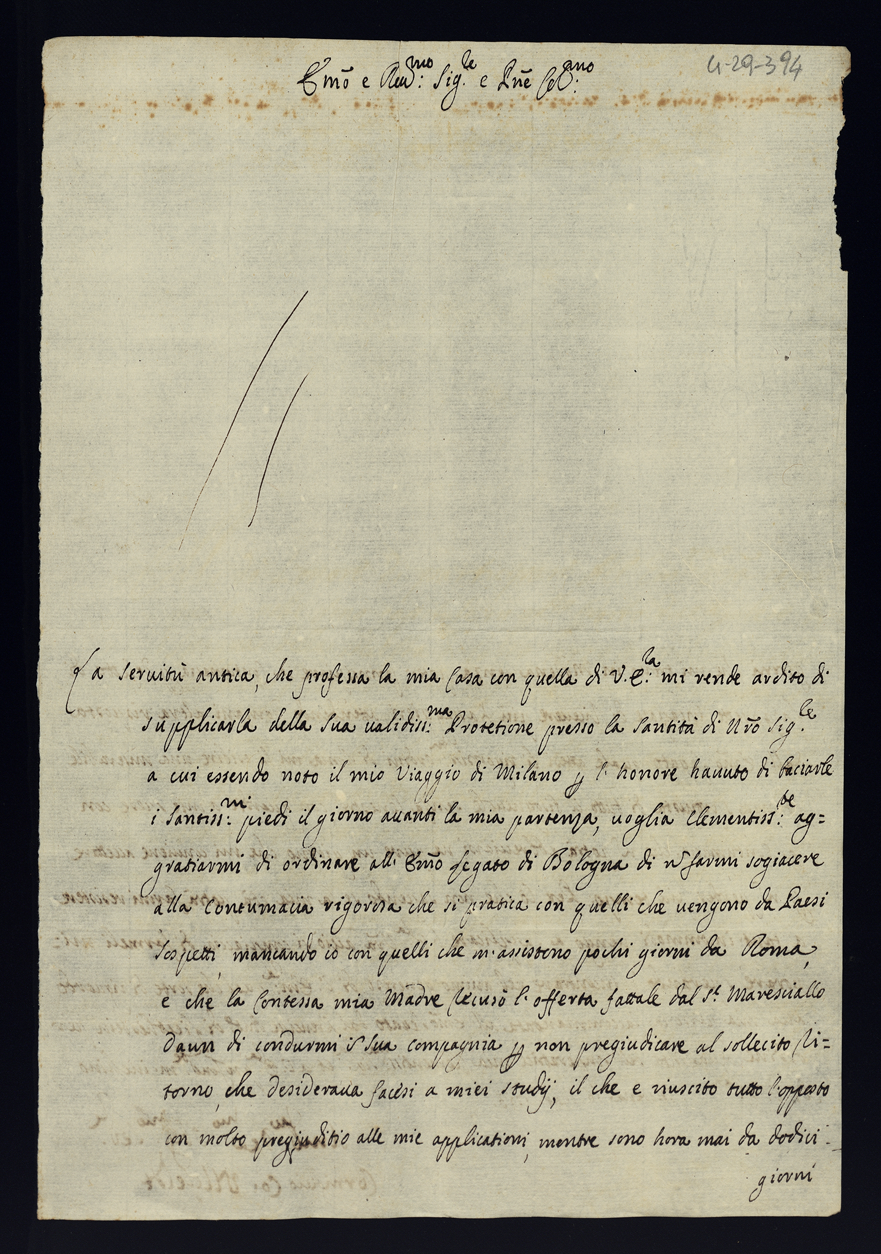 4-29-394
Emo e Reu.mo Sig.le e Pne Col.mo
La seruitù antica, che professa la mia Casa con quella di V. E.la mi rende ardito di
supplicarla della sua ualidiss.ma Protetione presso la Santità di Nro Sig.le
a cui essendo noto il mio Viaggio di Milano p l'honore hauuto di baciarle
i Santiss.mi piedi il giorno auanti la mia partenza, uoglia Clementiss.te ag=
gratiarmi di ordinare all' Emo Legato di Bologna di n farmi sogiacere
alla Contumacia rigorosa che si pratica con quelli che uengono da Paesi
Sospetti, mancando io con quelli che m'assistono pochi giorni da Roma,
e che la Contessa mia Madre recusò l'offerta fattale dal S.r Maresciallo
Daun di condurmi i Sua compagnia p non pregiudicare al sollecito ri=
torno, che desideraua facesi a miei studij, il che e riuscito tutto l'opposto
con molto pregiuditio alle mie applicationi, mentre sono hora mai da dodici
giorni